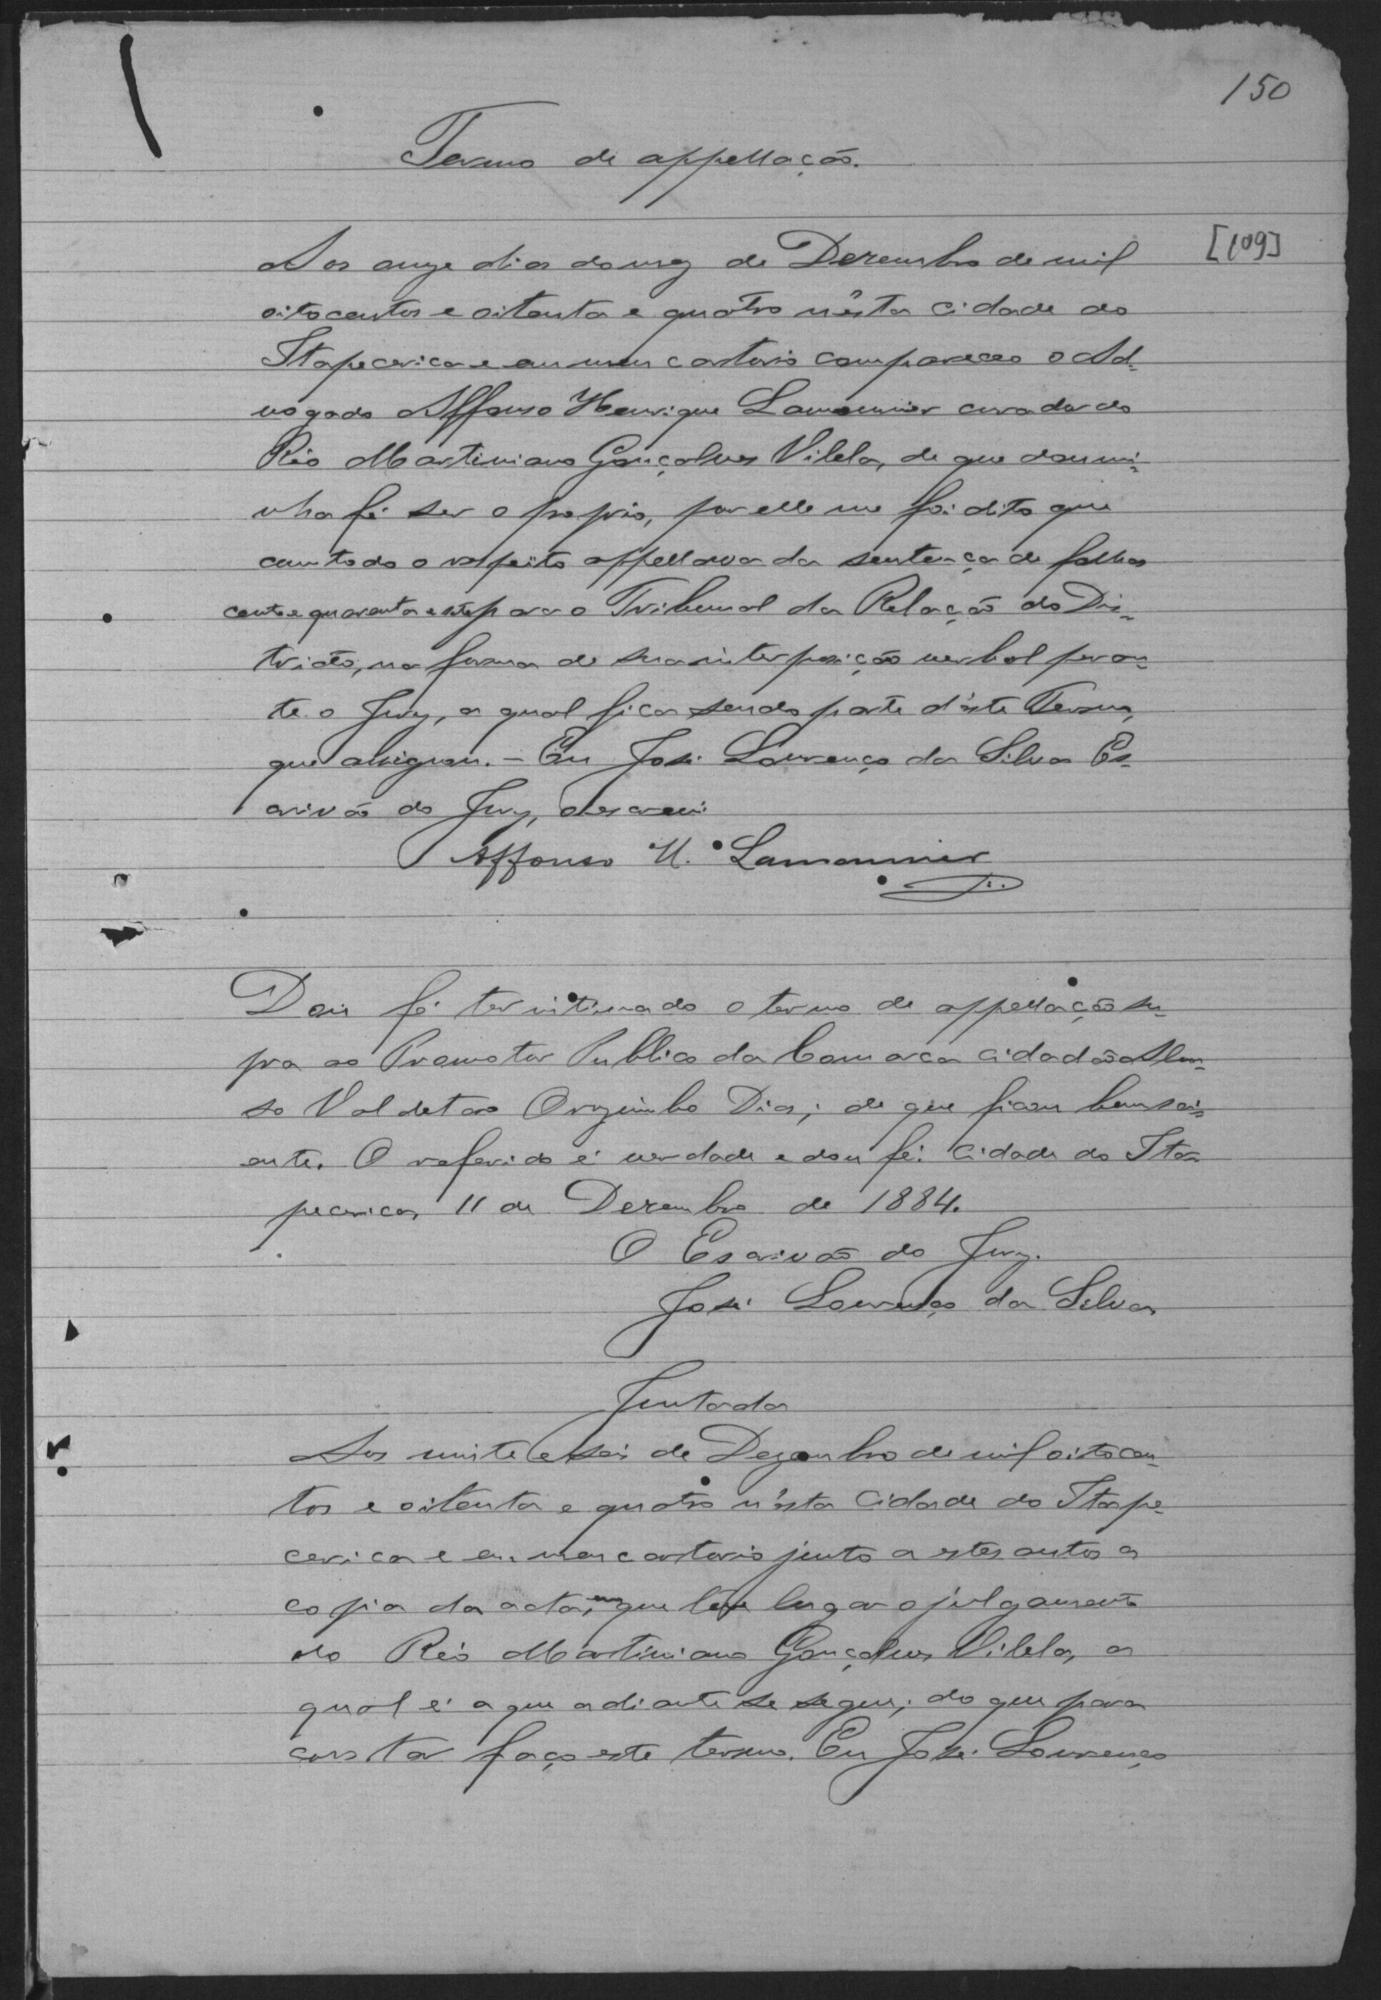 150
Termo de appellação.
[109]
Aos onze dias do mez de Dezembro de mil
oitocentos e oitenta e quatro n'ésta cidade do
Itapecerica e em meu cartorio compareceo o Ad-
vogado Affonso Henrique Lamounier curador do
Réo Martiniano Gonçalves Vilela, de que dou mi-
nha fé ser o proprio, por elle me foi dito que
com todo o respeito appellava da sentença de folhas
cento e quarenta e sete para o Tribunal da Relação do Dis-
tricto, na forma de sua interposição verbal peran-
te o Jury, a qual fica sendo parte d'éste Termo,
que assignou. - Eu José Lourenço da Silva Es-
crivão do Jury, o escrevi
Affonso H. Lamounier
Dou fé ter intimado o termo de appellação su-
pra ao Promotor Publico da Comarca cidadão
so Valdetaro Orozimbo Dias; de que ficou bem sci-
ente. O referido é verdade e dou fé. Cidade do Ita-
pecerica, 11 de Dezembro de 1884.
O Escrivão do Jury.
José Lourenço da Silva
Juntada
Aos vinte e seis de Dezembro de mil oitocen-
tos e oitenta e quatro n'ésta Cidade do Itape-
cerica e em meu cartorio junto a estes autos a
copia da acta, em que teve lugar o julgamento
do Réo Martiniano Gonçalves Vilela, a
qual é a que adiante se segue; do que para
constar faço este termo. Eu José Lourenço